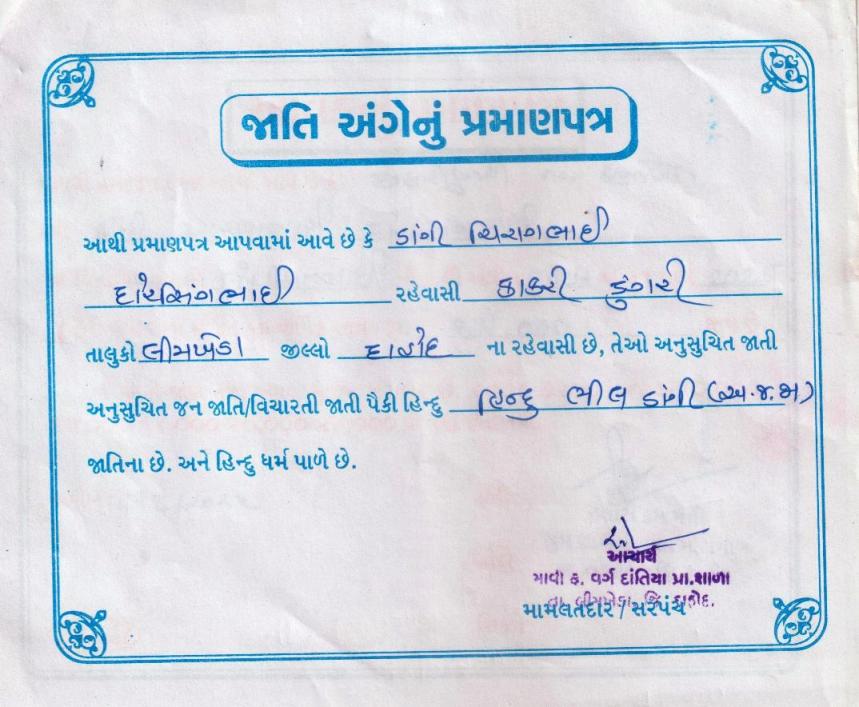 જાતિ અંગેનું પ્રમાણપત્ર
આથી પ્રમાણપત્ર આપવામાં આવે છે કે ડાંગી ચિરાગભાઈ
રહેવાસી કાકરી ડુંગરી
તાલુકો લીમખેડા જીલ્લો દાહોદ ના રહેવાસી છે, તેઓ અનુસુચિત જાતી
અનુસુચિત જન જાતિ/વિચારતી જાતી પૈકી હિન્દુ હિન્દુ ભીલ ડાંગી (અ.જ.જા)
જાતિના છે. અને હિન્દુ ધર્મ પાળે છે.
આચાર્ય
માવી ફ. વર્ગ દાંતિયા પ્રા.શાળા
તા. લીમખેડા જિ. દાહોદ.
મામલતદાર / સરપંચ